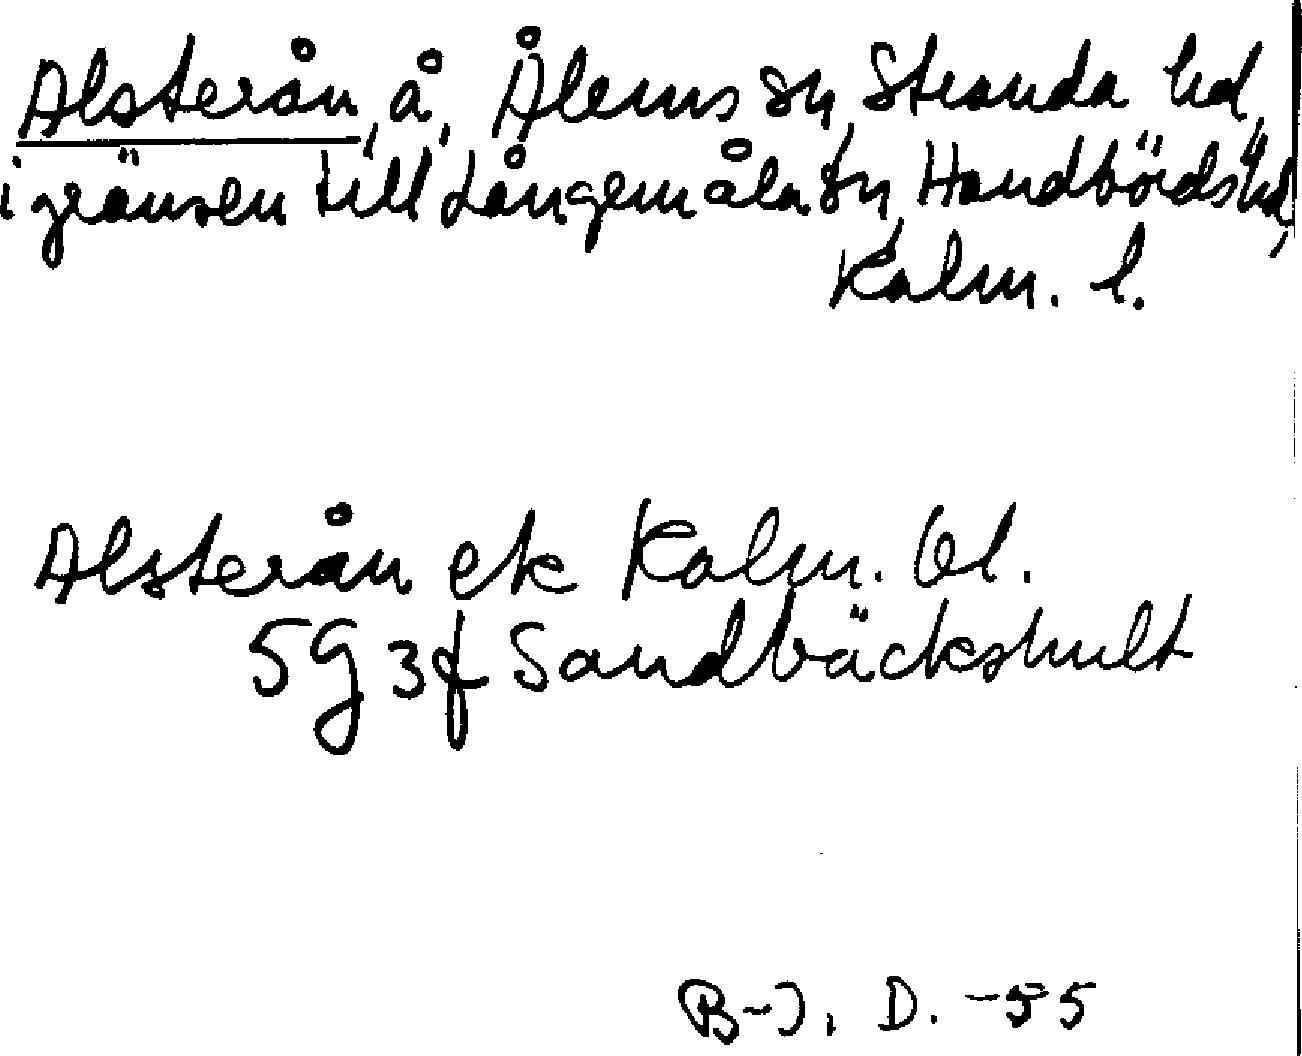 Alsterån, å, Ålems sn, Stranda hd,
i gränsen till Långemåla sn, Handbörds hd,
Kalm. l.
Alsterån ek Kalm. bl.
5G 3f Sandbäckshult
B-J. D. -55